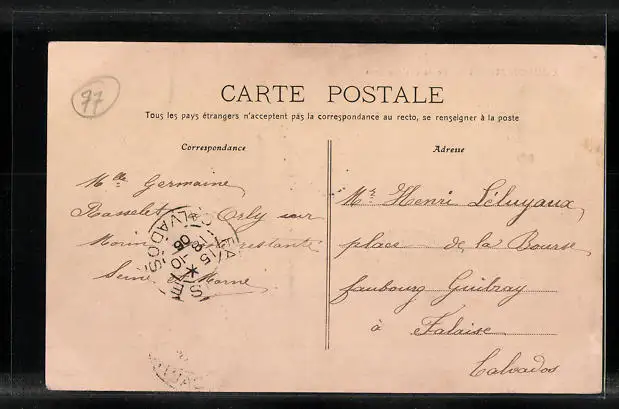 77
CARTE POSTALE
Tous les pays étrangers n'acceptent pas la correspondance au recto, se renseigner à la poste
Correspondance
Adresse
Mlle Germaine
Rasselet Orly sur
Morin restante
Seine et Marne
FALAISE
CALVADOS
Mr Henri Léluyaux
place de la Bourse
faubourg Guibray
à Falaise
Calvados